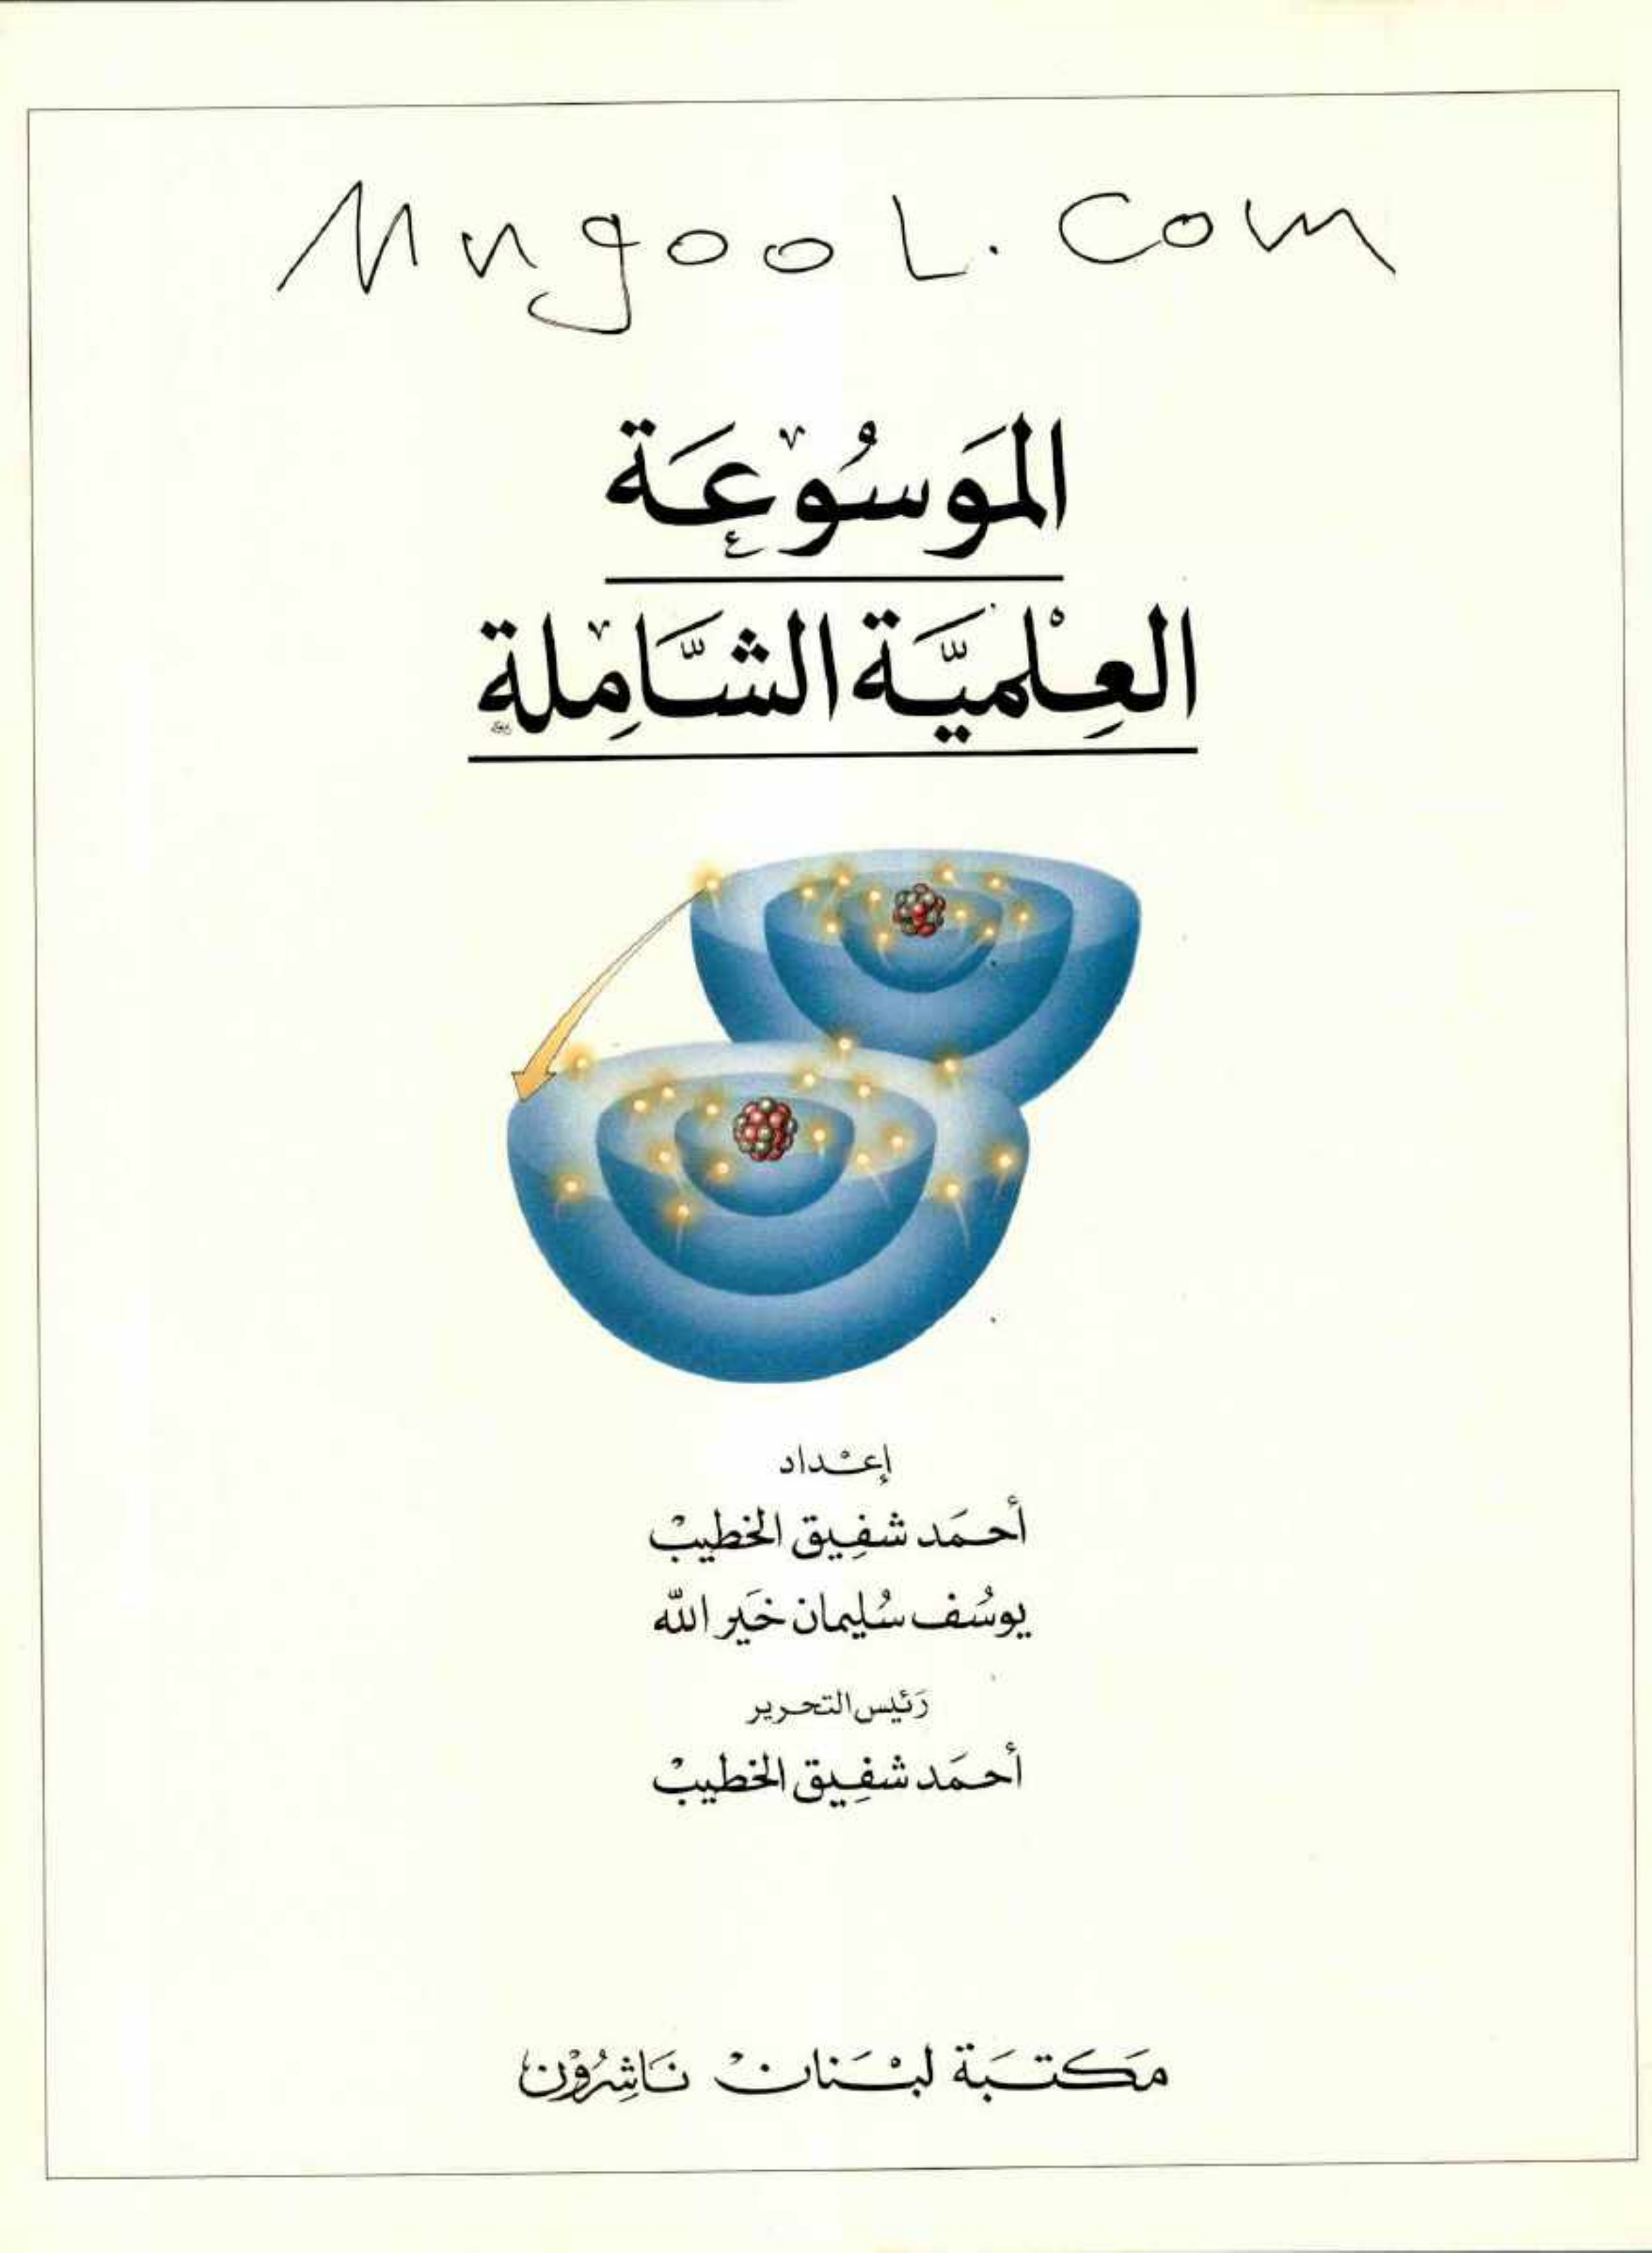 Mngool.com
المَوسُوعَة
العِلْميَّة الشَّامِلة
إعْداد
أحمَد شفِيق الخطيبْ
يوسُف سُليمان خَير الله
رَئيس التحرير
أحمَد شفِيق الخطيبْ
مَكتبَة لبْنَانْ نَاشِرُوْن